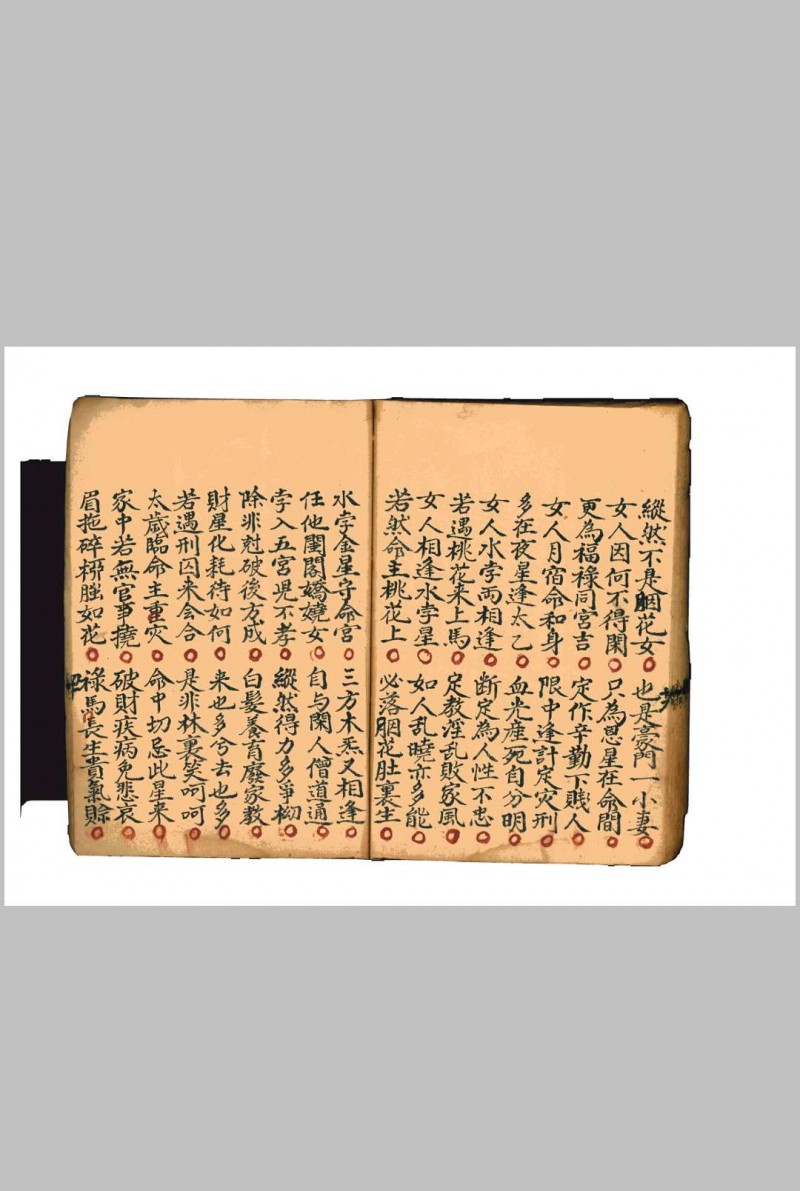 縱然不是胭花女　也是豪門一小妻
女人因何不得閑　只為恩星在命間
更為福祿同宮吉　定作辛勤下賤人
女人月宿命和身　限中逢計定灾刑
多在夜星逢太乙　血光產死自分明
女人水孛兩相逢　断定為人性不忠
若遇桃花来上馬　定教淫乱敗家風
女人相逢水孛星　如人乱曉亦多能
若然命主桃花上　必落胭花肚裏生
水孛金星守命宫　三方木炁又相逢
任他閨閣嬌嬈女　自与閑人僧道通
孛入五宮児不孝　縱然得力多爭拗
除非尅破後方成　白髮養育廢家教
財星化耗待如何　来也多兮去也多
若遇刑囚来会合　是非林裏笑呵呵
太歲臨命主重灾　命中切忌此星来
家中若無官事撓　破財疾病免悲哀
眉拖碎　如花　祿馬長生貴氣賒